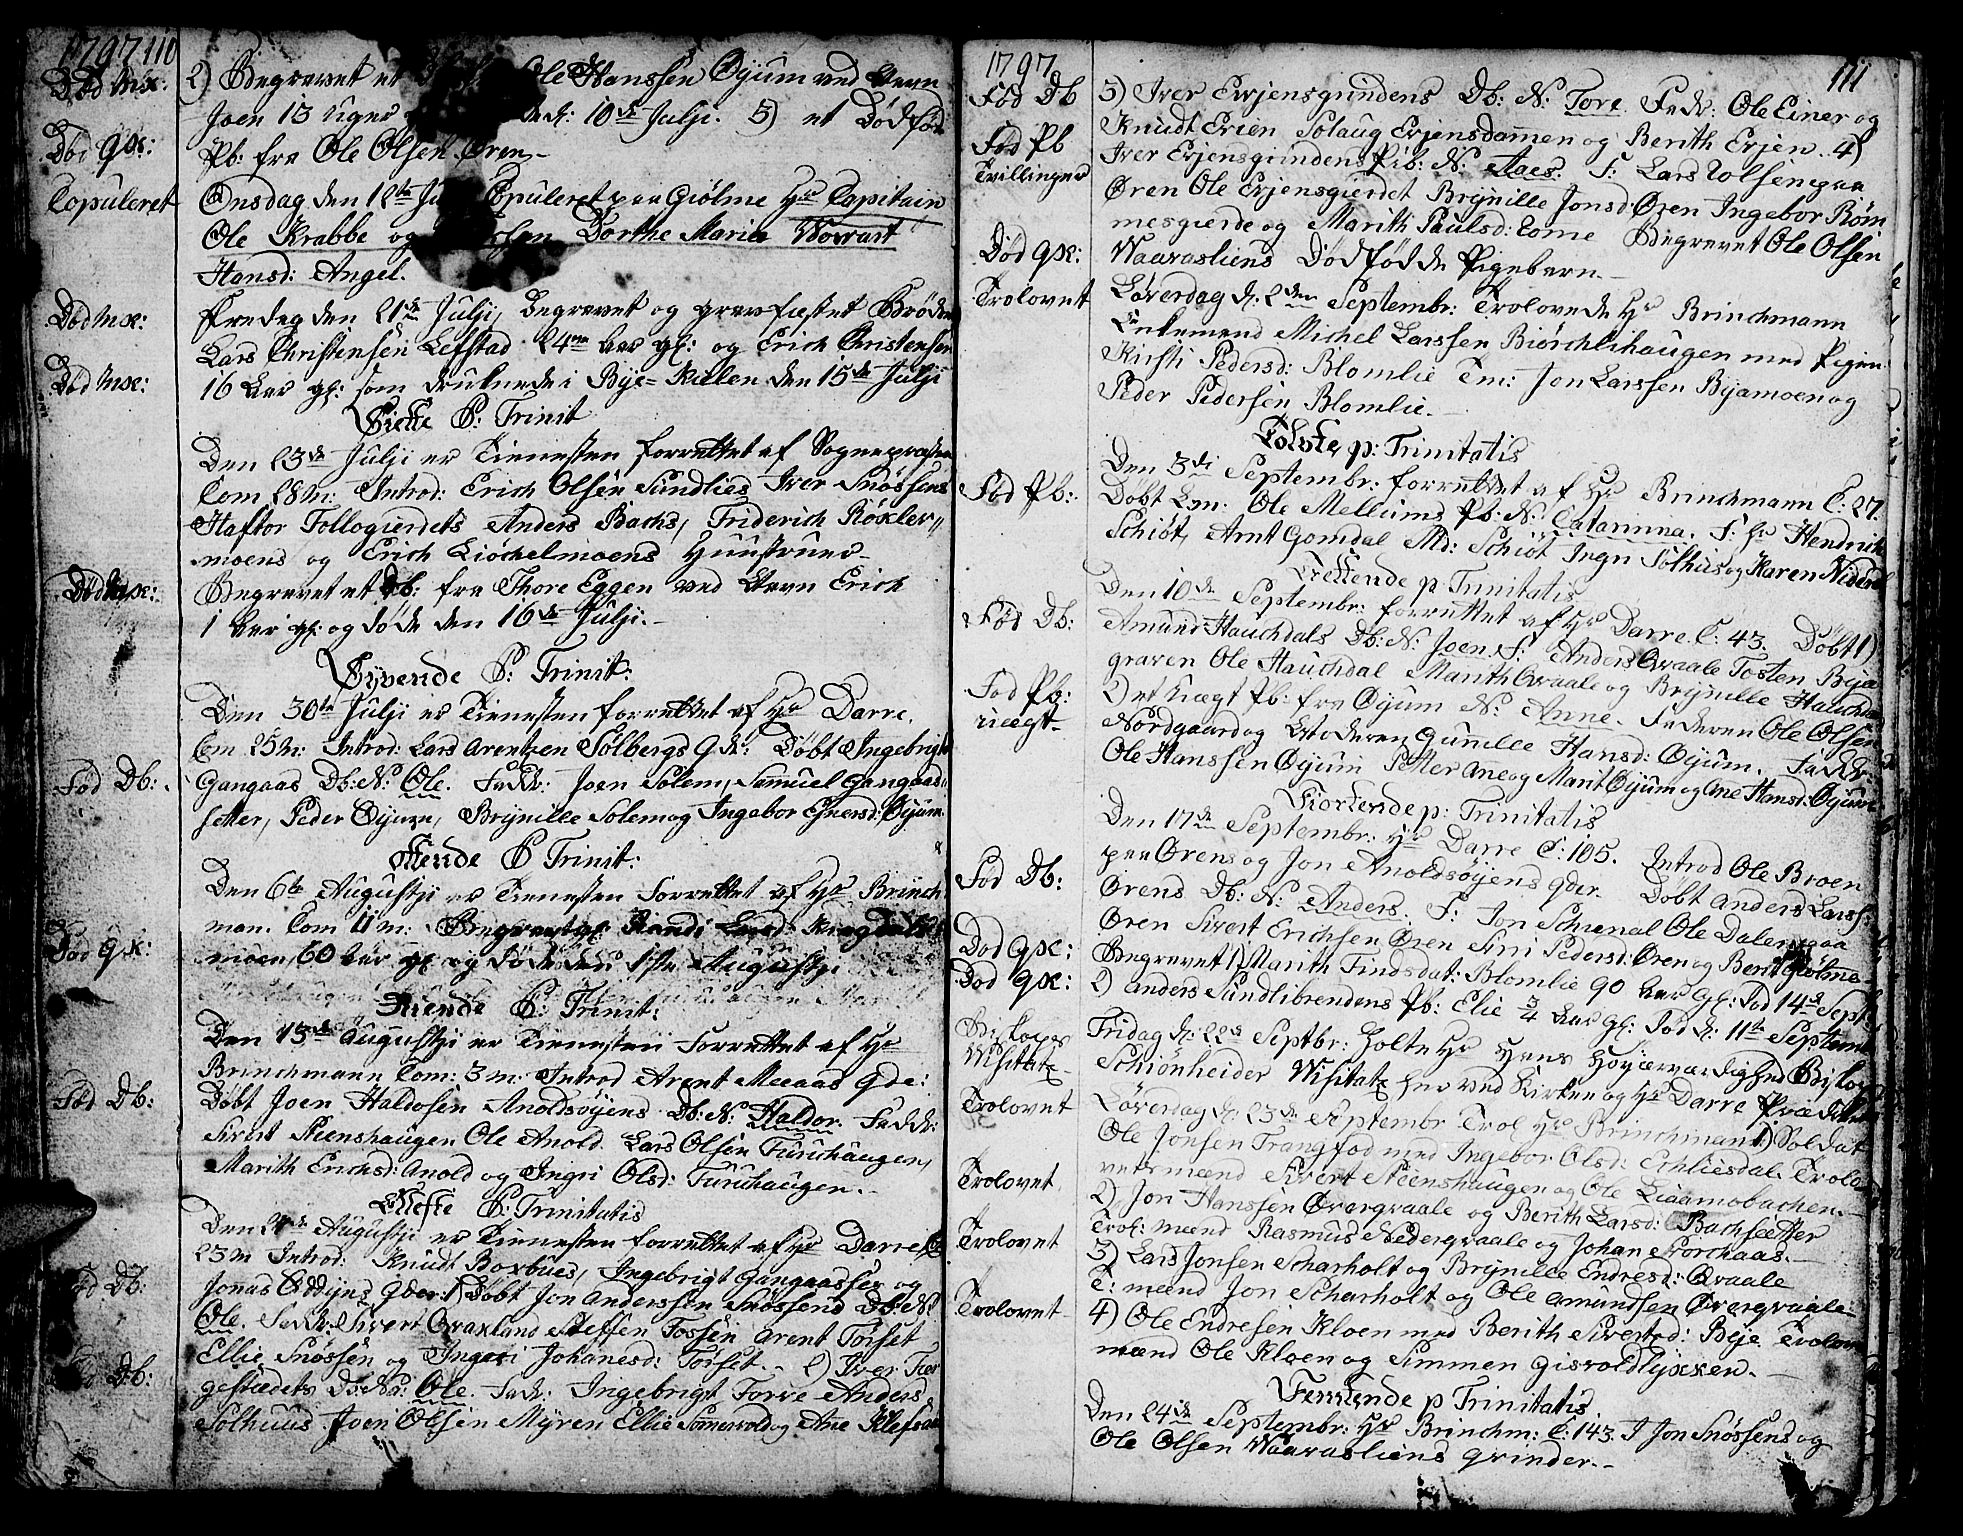 1797 110
Død Mk: 2) Begravet et Ole Hanssen Øyum ved Navn
Joen 13 uger d: 10de Julji. 3) et Dødfød
Død Qk: Pb: fra Ole Olsen Øren.
Copuleret Onsdag den 12te Copuleret paa Giølme Hr Capitain
Ole Krabbe og Dorthe Maria Worast
Hansd: Angel.
Død Mk: Fredag den 21de Julji, begravet og gravfæstet Brødre
Lars Christensen Lefstad 24 Aar gl: og Erich Christensen
Død Mk: 16 Aar gl: som druknede i Bye-Kielen den 15de Julji
Siette P: Trinit
Den 23de Julji er Tienesten forrettet af Sognepræsten
Com 28 M: Introd: Erich Olsen Sundlies Iver Snøssens
Haftor Follogierdets Anders Bachs, Friderich Røkler-
moens og Erich Liøchelmoens Huustruer
Død Mk: Begravet et Db: fra Thore Eggen ved Navn Erich
1 Aar gl: og døde den 16de Julji.
Syvende P: Trinit:
Den 30te Julji er Tienesten forrettet af Hr Darre.
Com 25 M: Introd: Lars Arentzen Solbergs Qd: Døbt Ingebrigt
Fød Db: Gangaas Db: N: Ole. Faddr: Joen Solem, Samuel Gangaas-
setter, Peder Øyum, Brynille Solem og Ingebor Ejnersd: Øyum.
Ottende P Trinit:
Den 6te Augustji er Tienesten forrettet af Hr Brinch
man. Com 11 M: Begravet Randi
Død Qk: moen, 60 Aar gl og døde den 1ste Augustji
Niende P: Trinit:
Den 13de Augustji er Tienesten forrettet af Hr
Brinchmann Com: 3 M: Introd Arent Meaas Qde:
Fød Db: Døbt Joen Haldosen Anoldsøyens Db: N: Haldor. Faddr:
Sivert Steenshaugen Ole Anold Lars Olsen Furuhaugen,
Marith Erichsd: Anold og Ingri Olsd: Furuhaugen.
Ellefte P: Trinitatis
Den Augustji er Tienesten forrettet af Hr Darre, C
23 M Introd: Knudt Boxbues, Ingebrigt Gangaasset og
Fød Db: Jonas Oddyns Qder. 1) Døbt Jon Anderssen Snøssens Db: N:
Ole. Faddr: Sivert Steffen Fossen Arent Torset
Ellie Snøssen og Ingeri Johanesd: Torset. 2) Iver
Fød Db: Db: N: Ole. Fadr: Ingebrigt Torre Anders
Solhuus Joen Olsen Myren Ellie og Ane
1797 111
Fød Db 3) Iver Erjensgrindens Db: N: Tore. Fadr: Ole Einer og
Knudt Erien Solaug Erjensdamen og Berith Erjen. 4)
Fød Pb Tvillinger Iver Erjensgrindens Pib: N: Aaes. F: Lars Tolfsen paa
Øren Ole Erjensgierdet Brynille Jonsd: Øren Ingebor Røm
mesgierde og Marith Paulsd: Eome Begravet Ole Olsen
Død Qk: Waarasliens Dødfødde Pigebarn.
Trolovet Løverdag d: 2den Septembr: Trolovede Hr Brinchmann
Enkemand Michel Larssen Biørchlihaugen med Pigen
Kirsti Pedersd: Blomlie Tm: Jon Larssen Byamoen og
Peder Pedersen Blomlie.
Tolvte p: Trinitatis
Den 3di Septembr: forrettet af Hr Brinchmann C: 27.
Fød Pb: Døbt Ole Melliums Pb: N: Catarina. F: Hr Hendrich
Schiøt, Arnt Gomdal Md: Schiøt Ingr Solhus og Karen
Trettende p: Trinitatis
Den 10de Septembr: forrettet af Hr Darre. C: 43. Døbt 1)
Fød Db: Amund Hauchdals Db: N: Joen. F: Anders Qvaale Tosten Bye
graven Ole Hauchdal Marith Qvaale og Brynille Hauchdal
Fød Pb: uægt 2) et uægt Pb: fra Øyum N: Anne. Faderen Ole Olsen
Nordgaard og Moderen Gunille Hansd: Øyum. Faddr:
Ole Hanssen Øyum Petter Ane og Marit Øyum og Ane Hansd: Øyum
Fiortende p: Trinitatis
Den 17de Septembr: Hr Darre C: 105. Introd Ole Broen
paa Ørens og Jon Anoldsøyens Qder. Døbt Anders Larss:
Fød Db: Ørens Db: N: Anders. F: Jon Schienal Ole Dalen paa
Øren Sivert Erichsen Øren Siri Pedersd: Øren og Berit Giølme
Død Qk: Begravet 1) Marith Findsdat: Blomlie 90 Aar gl: Død 14de Sept:
Død Qk: 2) Anders Sundlibrendens Pb: Elie 3/4 Aar gl: Død d: 11te Septemb
Biskops Visitatz Fridag d: 22de Septbr: holte Hr Hans Høyærværdighed Biskop
Schiønheider Visitatz her ved Kirken og Hr Darre Prædiket
Trolovet Løverdag d: 23de Septembr Trol Hr Brinchmann 1) Soldat
Ole Jonsen Trangfod med Ingebor Olsd: Echliesdal. Trolo
vermænd Sivert Steenshaugen og Ole Liaamobachen.
Trolovet 2) Jon Hanssen Øvergvaale og Berith Larsd: Bachsetter
Trol: mænd Rasmus Nedergvaale og Johan Storchaas.
Trolovet 3) Lars Jonsen Scharholt og Brynille Endresd: Qvaale
T: mænd Jon Scharholt og Ole Amundsen Øvergvaale
Trolovet 4) Ole Endresen Kloen med Berith Sivertsd: Beje Trolov
mænd Ole Kloen og Simmen Gisvoldlykken.
Femtende p Trinitatis.
Den 24de Septembr: Hr Brinchm: C: 143. I Jon Snøssens og
Ole Olsen Waarasliens Qvinder.